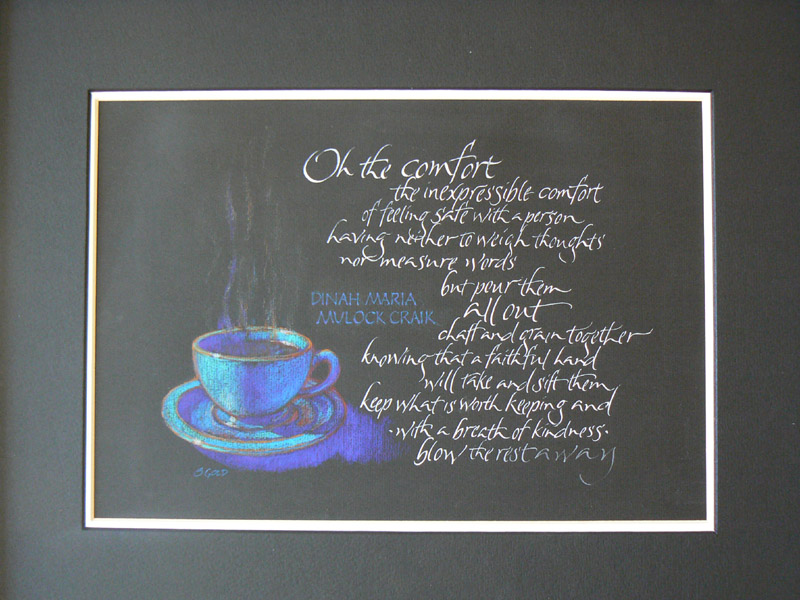 Oh the comfort
the inexpressible comfort
of feeling safe with a person
having neither to weigh thoughts
nor measure words
but pour them
all out
chaff and grain together
knowing that a faithful hand
will take and sift them,
keep what is worth keeping and
·with a breath of kindness·
blow the rest away
DINAH MARIA
MULOCK CRAIK
S GOLD